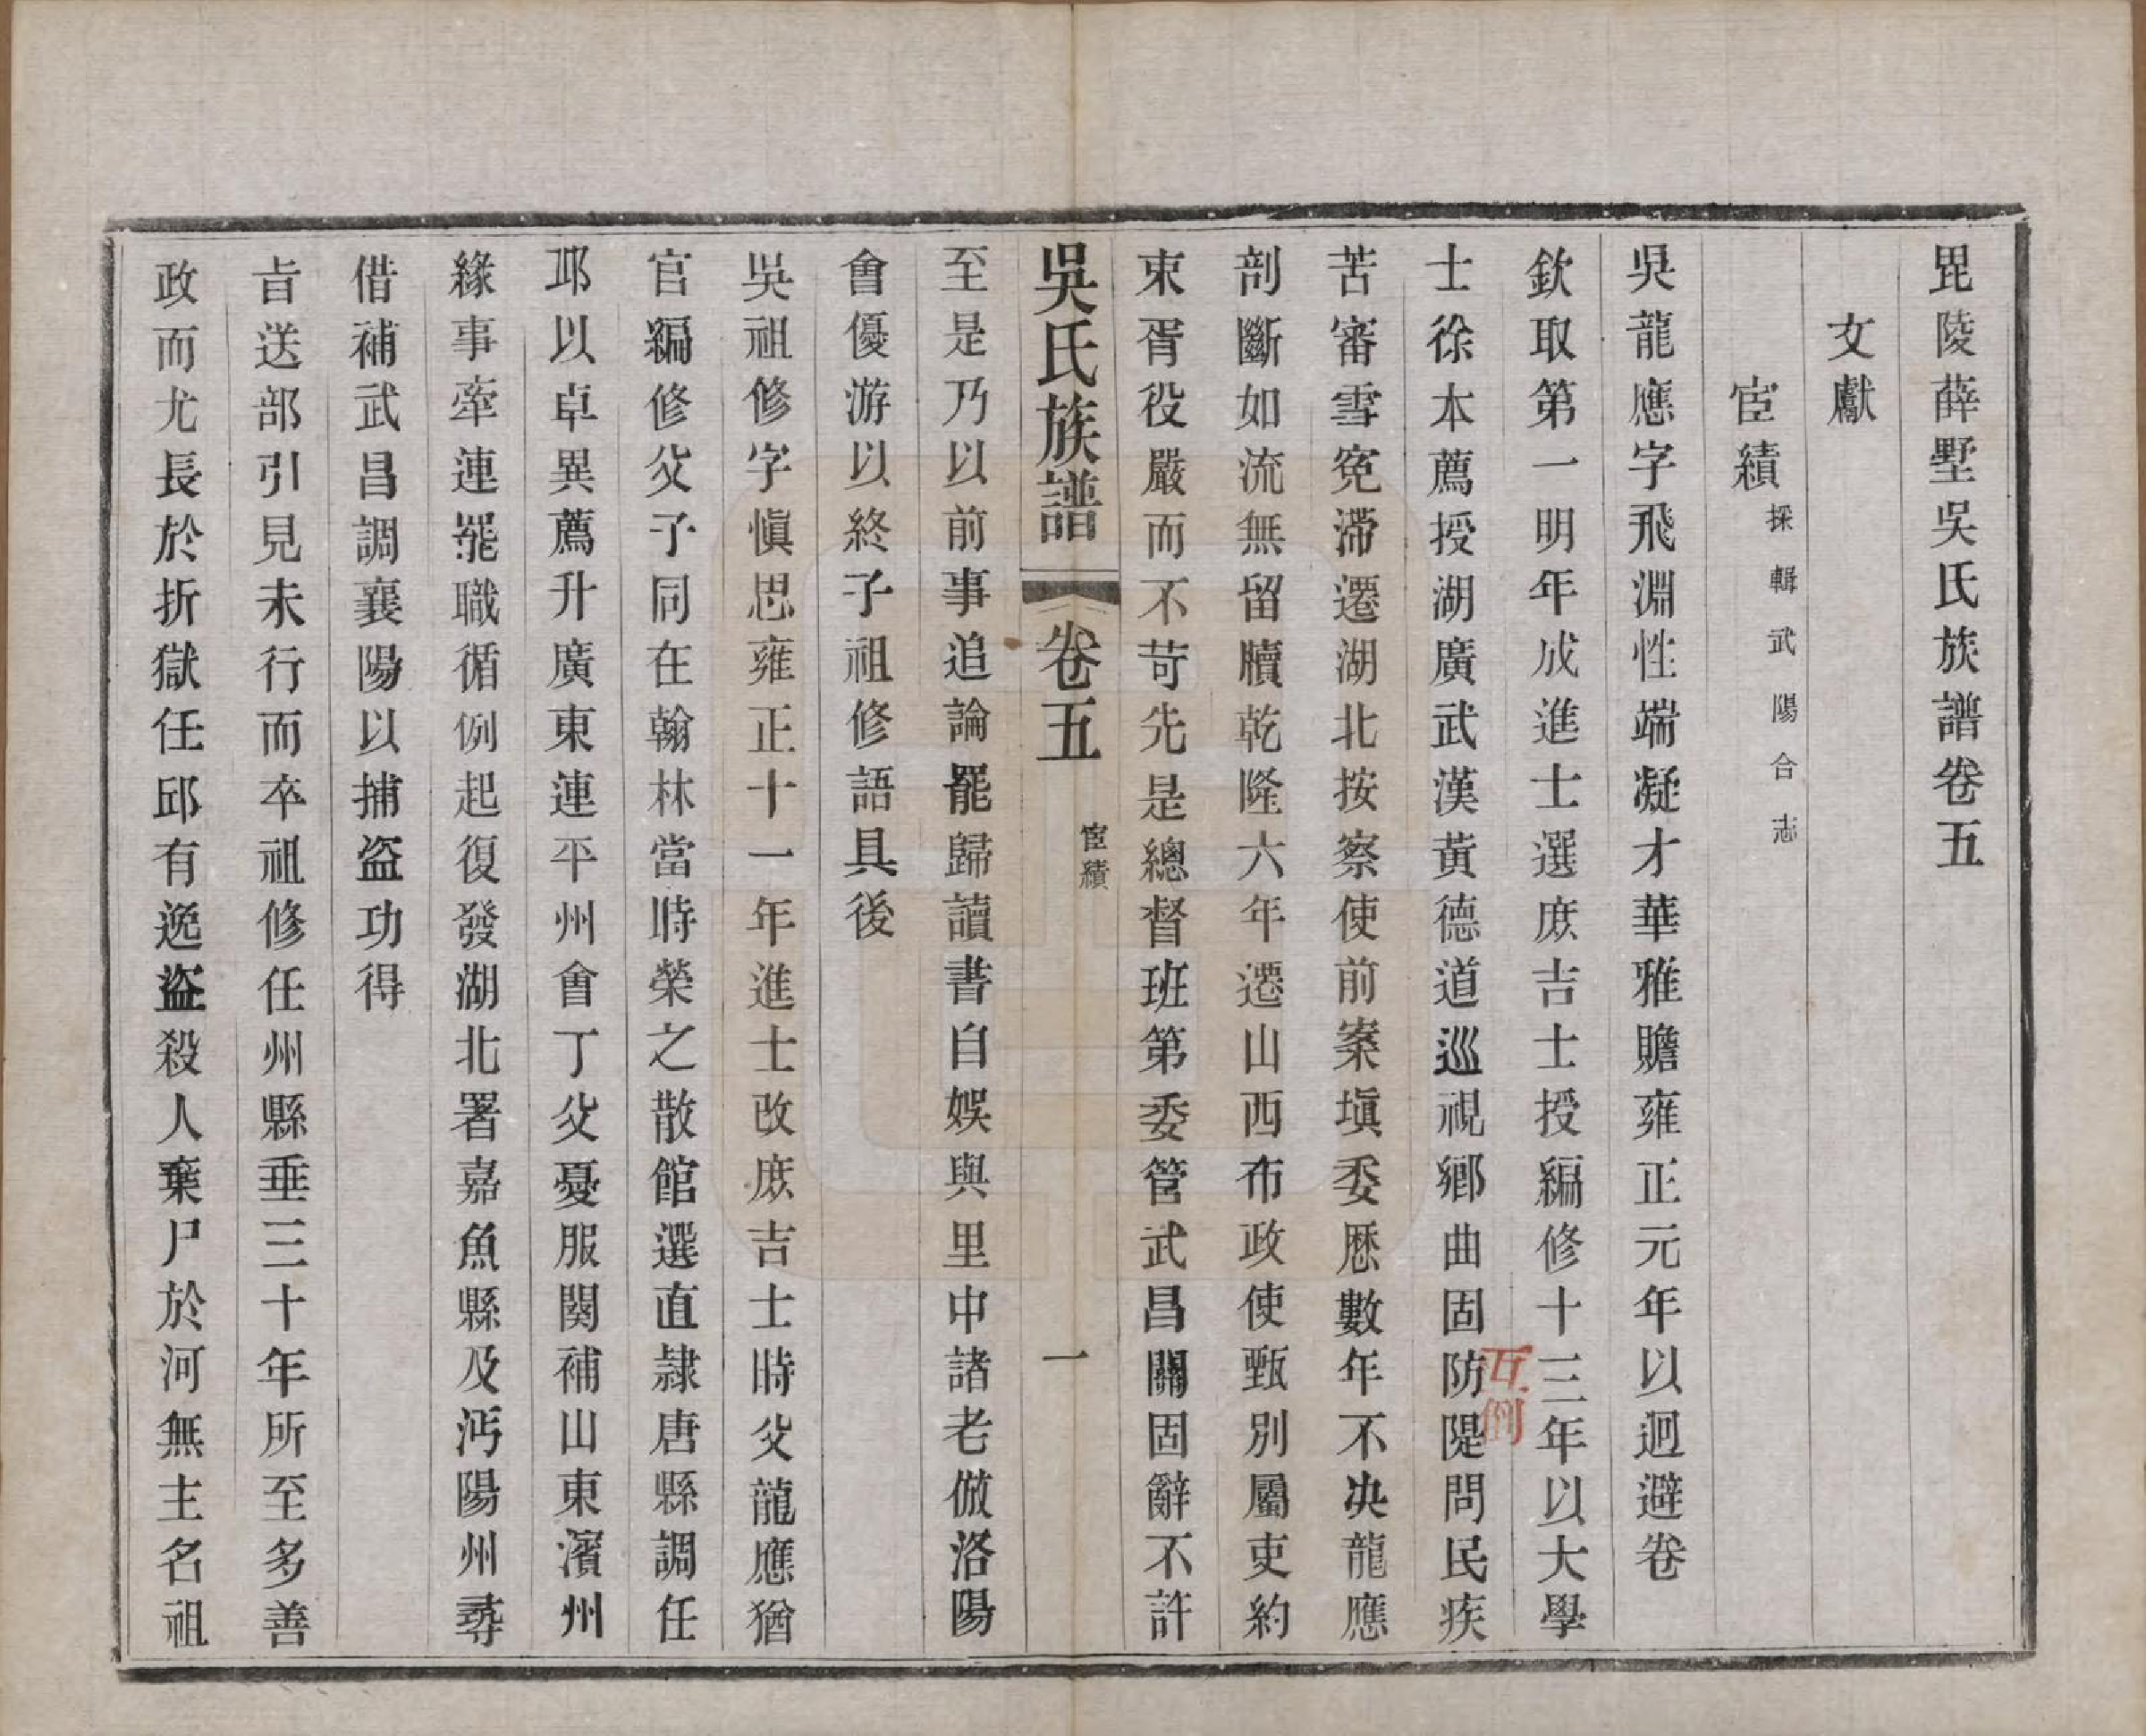 毘陵薛墅吳氏族譜卷五
文獻
宦績採輯武陽合志
吳龍應字飛淵性端凝才華雅贍雍正元年以迴避卷
欽取第一明年成進士選庶吉士授編修十三年以大學
士徐本薦授湖廣武漢黃德道巡視鄉曲固防隄問民疾
互倒
苦審雪冤滯遷湖北按察使前案塡委歷數年不决龍應
剖斷如流無留牘乾隆六年遷山西布政使甄別屬吏約
束胥役嚴而不苛先是總督班第委管武昌關固辭不許
吳氏族譜
卷五
宦績
一
至是乃以前事追論罷歸讀書自娛與里中諸老倣洛陽
會優游以終子祖修語具後
吳祖修字愼思雍正十一年進士改庶吉士時父龍應猶
官編修父子同在翰林當時榮之散館選直隷唐縣調任
邛以卓異薦升廣東連平州會丁父憂服闋補山東濱州
緣事牽連罷職循例起復發湖北署嘉魚縣及沔陽州尋
借補武昌調襄陽以捕盜功得
㫖送部引見未行而卒祖修任州縣垂三十年所至多善
政而尤長於折獄任邱有逸盜殺人棄尸於河無主名祖